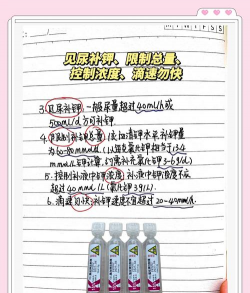 见尿补钾、限制总量、
控制浓度、滴速勿快
3.见尿补钾:一般尿量超过40mL/h或
500mL/d方可补钾.
4.限制补钾总量:依血清钾水平,补钾量
为60~80mmol/d(以每克氯化钾相当于13.4
mmoL钾计算,约需补充氯化钾3~6g/d)
5.控制补液中钾浓度:补液中钾浓度不宜
超过40mmoL/L(氯化钾3g/L).
6.滴速勿快:补钾速度不宜超过20~40mmoL/h.